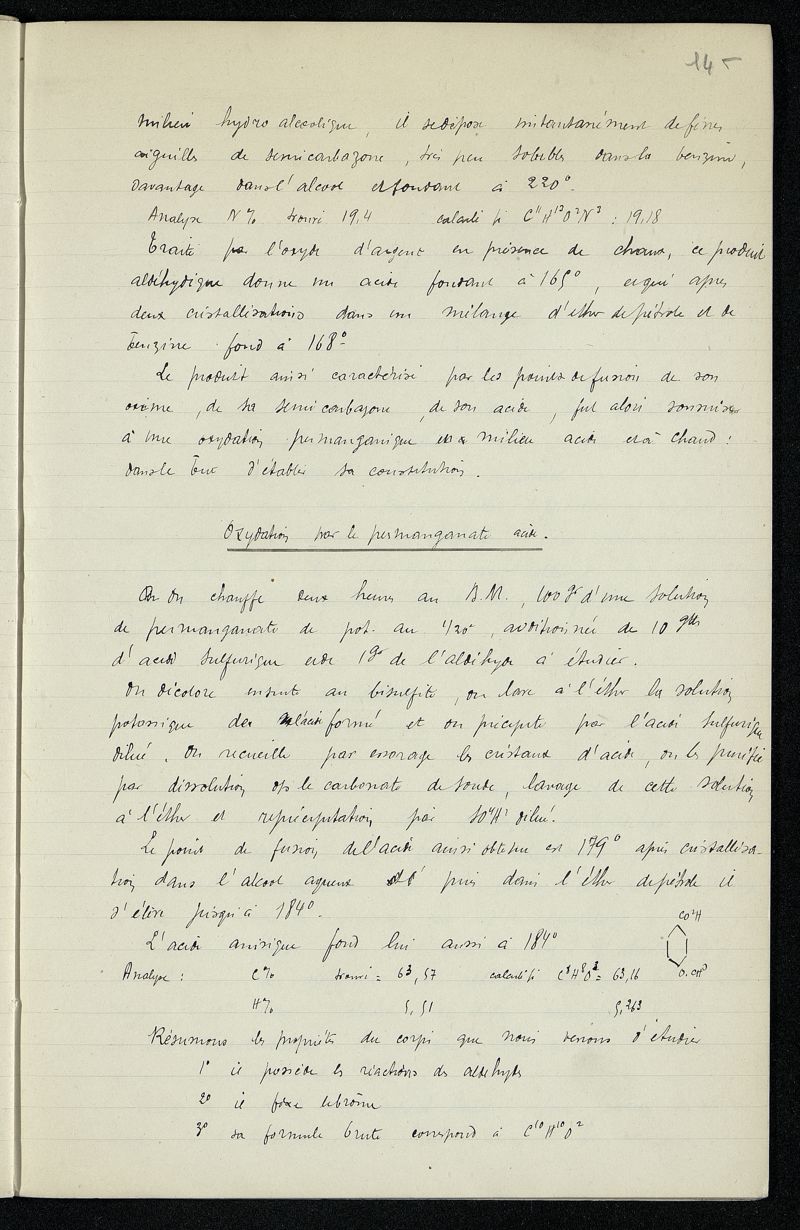 145
milieu hydro alcoolique, il se dépose instantanément de fines
aiguilles de semicarbazone, très peu solubles dans la benzine,
davantage dans l'alcool et fondant à 220°.
Analyse N% trouvé 19,4 calculé pr C¹¹H¹³O²N³ : 19,18
Traité par l'oxyde d'argent en présence de chaux, ce produit
aldéhydique donne un acide fondant à 165°, et qui après
deux cristallisations dans un mélange d'éther de pétrole et de
benzine fond à 168°
Le produit ainsi caractérisé par les points de fusion de son
oxime, de sa semicarbazone, de son acide, fut alors soumis
à une oxydation permanganique en milieu acide et à chaud :
dans le but d'établir sa constitution.
Oxydation par le permanganate acide.
On chauffe deux heures au B.M., 100gr d'une solution
de permanganate de pot. au 1/20, additionnée de 10 gttes
d'acide sulfurique et de 1gr de l'aldéhyde à étudier.
On décolore ensuite au bisulfite, on lave à l'éther la solution
potassique de l'acide formé et on précipite par l'acide sulfurique
dilué. On recueille par essorage les cristaux d'acide, on les purifie
par dissolution ds le carbonate de soude, lavage de cette solution
à l'éther et reprécipitation par SO⁴H² dilué.
Le point de fusion de l'acide ainsi obtenu est 179° après cristallisa-
tion dans l'alcool aqueux puis dans l'éther de pétrole il
s'élève jusqu'à 184°.
L'acide anisique fond lui aussi à 184°
CO²H
O.CH³
Analyse : C% trouvé = 63,57 calculé pr C⁸H⁸O³ = 63,16
H% 5,51 5,263
Résumons les propriétés du corps que nous venons d'étudier
1° il possède les réactions des aldéhydes
2° il fixe le brôme
3° sa formule brute correspond à C¹⁰H¹⁰O²